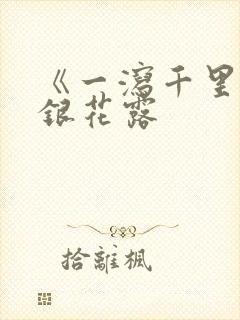 《一瀉千里
銀花露
拾離楓